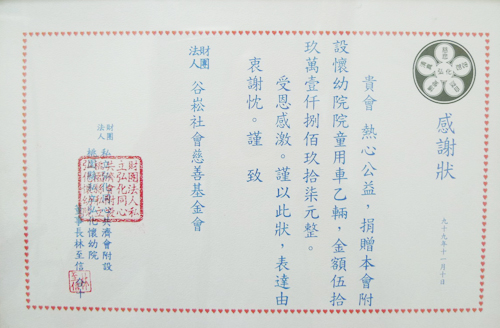 感謝狀
九十九年十一月十日
貴會 熱心公益，捐贈本會附
設懷幼院院童用車乙輛，金額伍拾
玖萬壹仟捌佰玖拾柒元整。
受恩感激。謹以此狀，表達由
衷謝忱。謹 致
財團法人
谷崧社會慈善基金會
財團法人
私立弘化同心共濟會附設
弘化懷幼院
董事長林至信
財團法人私
立弘化同心
共濟會附設